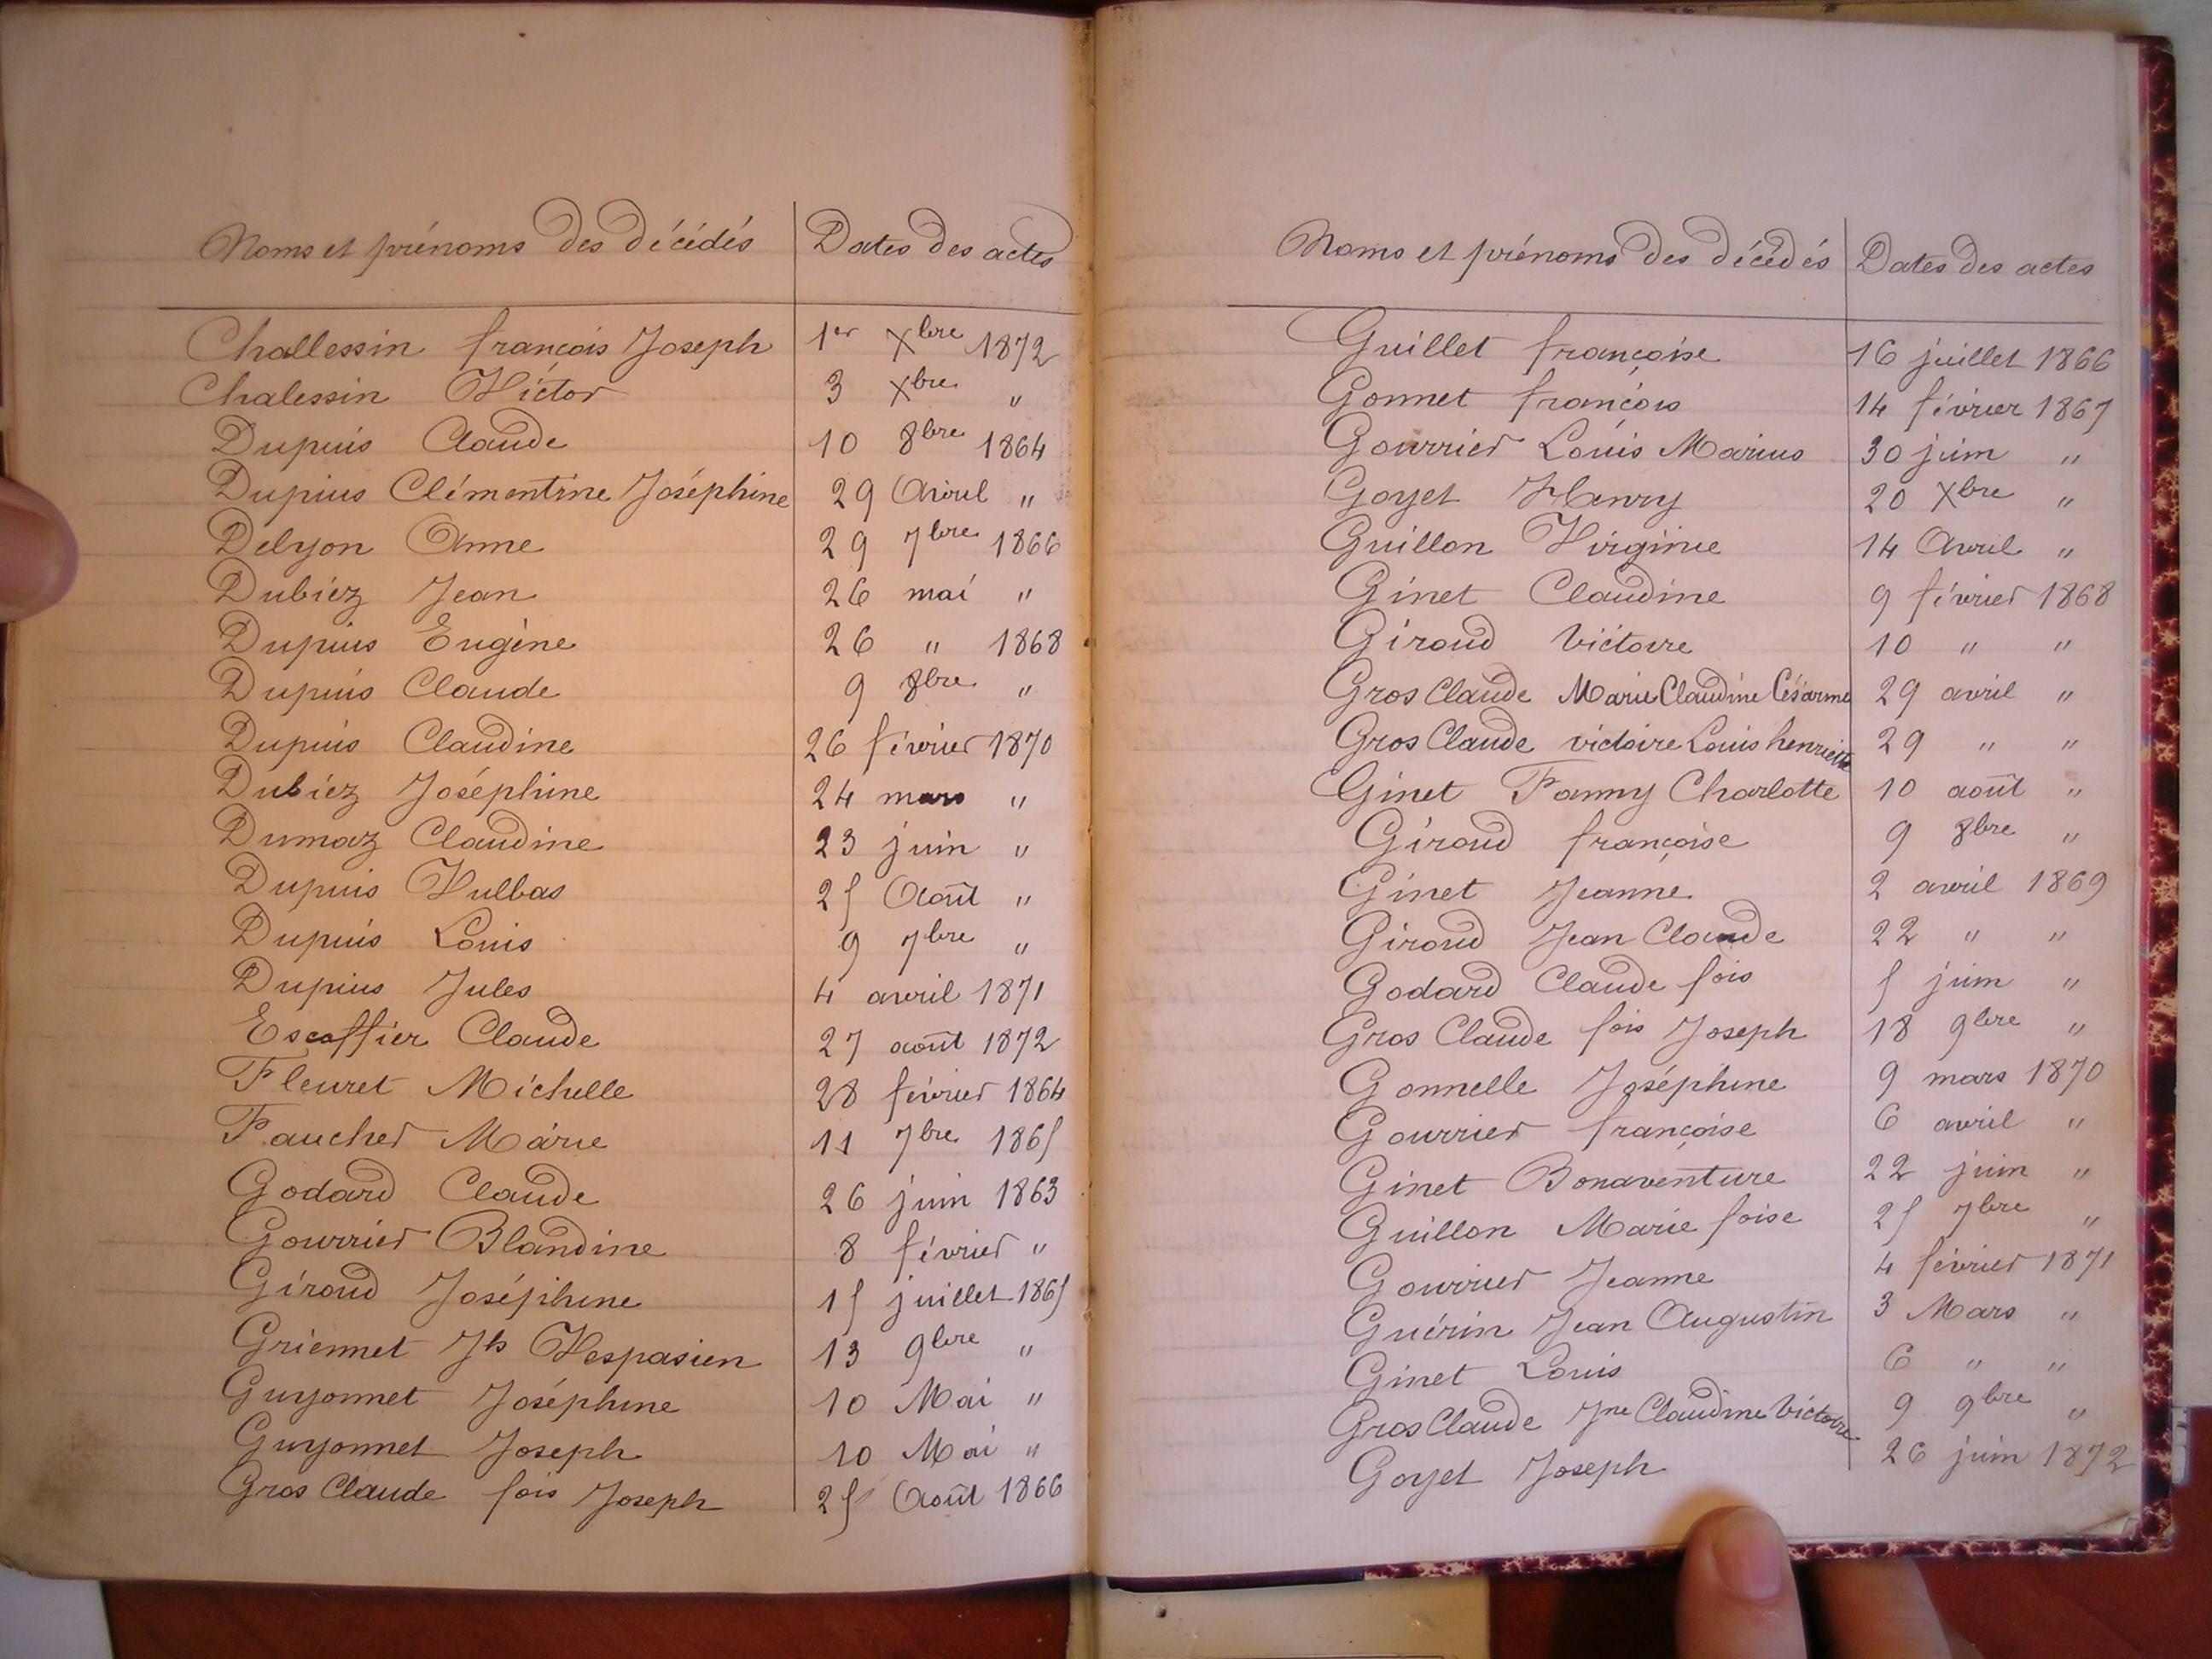 Noms et prénoms des décédés Dates des actes
Challessin françois Joseph 1er Xbre 1872
Chalessin Victor 3 Xbre "
Dupuis Claude 10 8bre 1864
Dupuis Clémentine Joséphine 29 Avril "
Delyon Anne 29 7bre 1866
Dubiez Jean 26 mai "
Dupuis Eugène 26 " 1868
Dupuis Claude 9 8bre "
Dupuis Claudine 26 février 1870
Dubiez Joséphine 24 mars "
Dumaz Claudine 23 juin "
Dupuis Vulbas 25 Août "
Dupuis Louis 9 7bre "
Dupuis Jules 4 avril 1871
Escoffier Claude 27 août 1872
Fleuret Michelle 28 février 1864
Faucher Marie 11 7bre 1865
Godard Claude 26 juin 1863
Gourrier Blandine 8 février "
Giroud Joséphine 15 juillet 1865
Griennet Jh Vespasien 13 9bre "
Guyonnet Joséphine 10 Mai "
Guyonnet Joseph 10 Mai "
Gros Claude fois Joseph 25 Août 1866
Noms et prénoms des décédés Dates des actes
Guillet françoise 16 juillet 1866
Gonnet françois 14 février 1867
Gourrier Louis Marius 30 juin "
Goyet Henry 20 Xbre "
Guillon Virginie 14 Avril "
Ginet Claudine 9 février 1868
Giroud Victoire 10 " "
Gros Claude Marie Claudine Césarine 29 avril "
Gros Claude victoire Louis henriette 29 " "
Ginet Fanny Charlotte 10 août "
Giroud françoise 9 8bre "
Ginet Jeanne 2 avril 1869
Giroud Jean Claude 22 " "
Godard Claude fois 5 juin "
Gros Claude fois Joseph 18 9bre "
Gonnelle Joséphine 9 mars 1870
Gourrier françoise 6 avril "
Ginet Bonaventure 22 juin "
Guillon Marie foise 25 7bre "
Gourrier Jeanne 4 février 1871
Guérin Jean Augustin 3 Mars "
Ginet Louis 6 " "
Gros Claude Jne Claudine Victoire 9 9bre "
Goyet Joseph 26 juin 1872